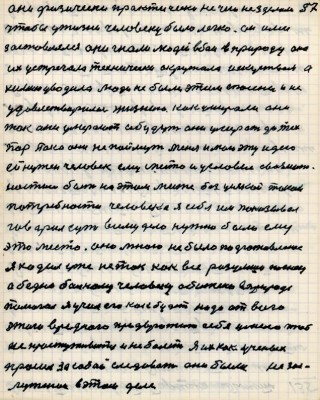 они физически практически не чим не зделали 57
чтобы у жизни человеку было легко. он или
заставляли они гнали людей в бой в природу она
их встречала технически окружала искуством а
химию вводила люди не были этим спасены и не
удовлетворились жизнею как умирали они
так они умирают и будут они умирать до тех
пор пока они не поймут меня и мою эту идею
ей нужен человек ему место и условие
быть на этом месте без всякой такой
потребности человека я себя им показывал
говорил суть всему делу нужно было ему
это место. оно много не было подготовлено
я ходил уже не так как все разутым по снегу
а бедно больному человеку обиженному в природе
помогал я учил его как будет надо от всего
этого вредного предупреждать себя и чего чтоб
не простуживаться и не болеть я их как ученых
просил за собой следовать они были не
в этом деле